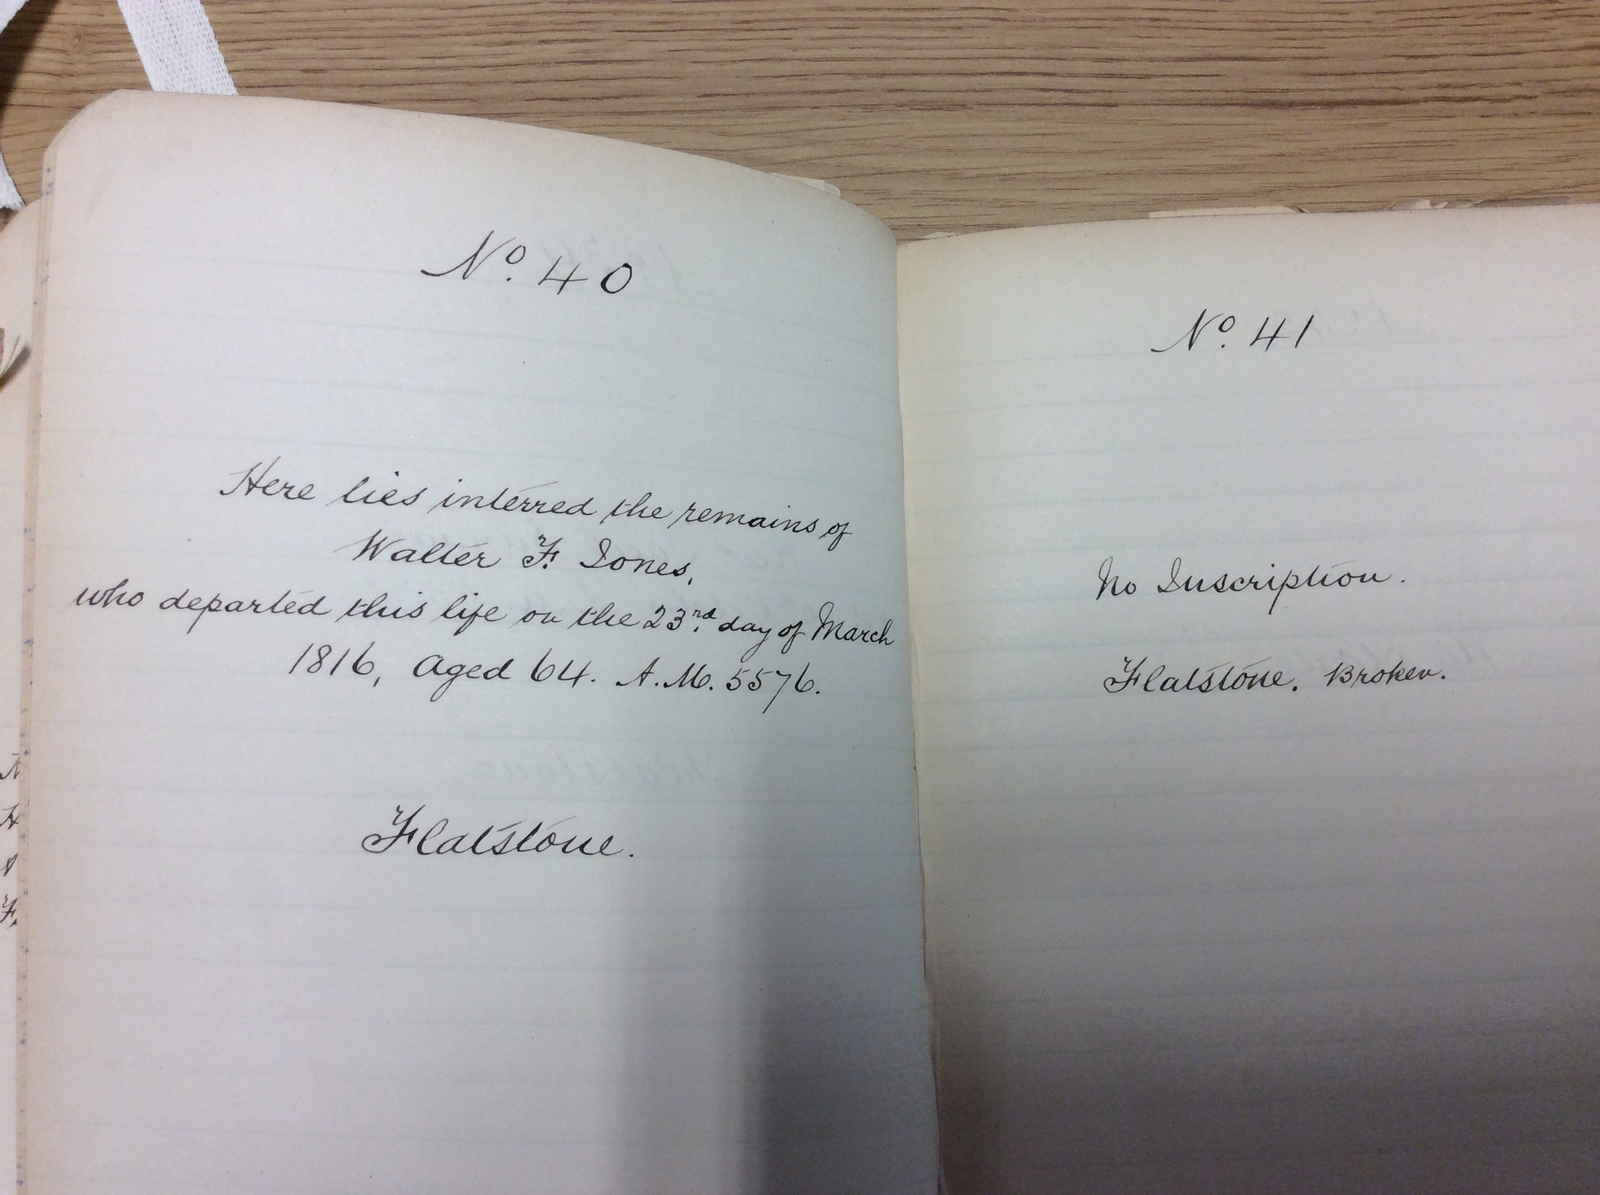 No. 40
Here lies interred the remains of
Walter F. Jones,
who departed this life on the 23rd day of March
1816, aged 64. A.M. 5576.
Flatstone.
No. 41
No Inscription.
Flatstone. Broken.